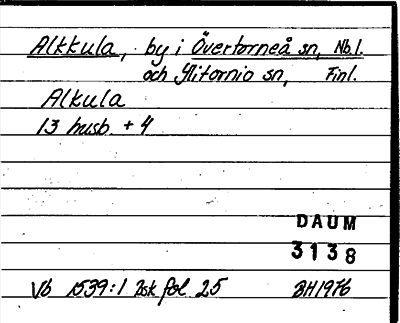 Alkkula, by i Övertorneå sn, Nb.l.
och Ylitornio sn, Finl.
Alkula
13 husb. + 4
DAUM
3138
Vb 1539:1 Isk fol 25 BH1976